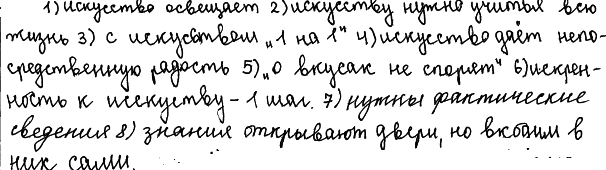 1) искусство освещает 2) искусству нужно учиться всю
жизнь 3) с искусством „1 на 1" 4) искусство даёт непо-
средственную радость 5) „о вкусах не спорят" 6) искрен-
ность к исскуству - 1 шаг. 7) нужны фактические
сведения 8) знания открывают двери, но входим в
них сами.